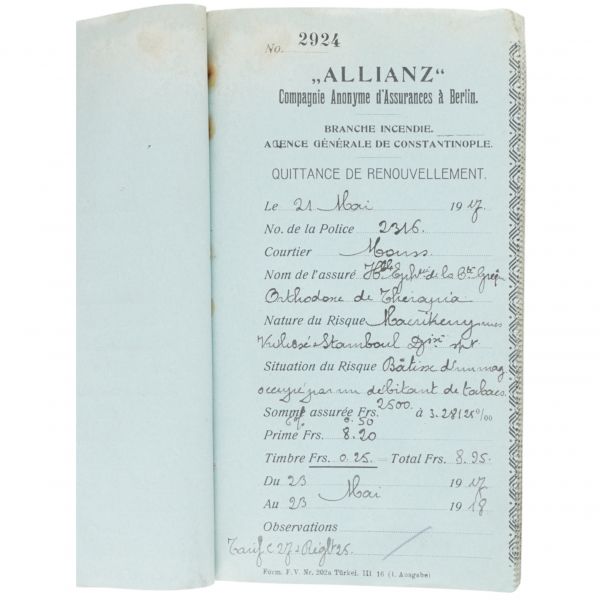 No. 2924
„ALLIANZ“
Compagnie Anonyme d'Assurances à Berlin.
BRANCHE INCENDIE.
AGENCE GÉNÉRALE DE CONSTANTINOPLE.
QUITTANCE DE RENOUVELLEMENT.
Le 21 Mai 1917
No. de la Police 2316
Courtier
Nom de l'assuré de la
Orthodoxe de Thérapia
Nature du Risque
Stamboul
Situation du Risque Bâtisse d'un mag
occupé par un débitant de tabacs
Somme assurée Frs. 2500. à 3.28125 0/00
0.50
Prime Frs. 8.20
Timbre Frs. 0.25 = Total Frs. 8.95
Du 23 Mai 1917
Au 23 1918
Observations
Tarif C 27 Règlt 25.
Form. F. V. Nr. 202a Türkei. III. 16 (1. Ausgabe)